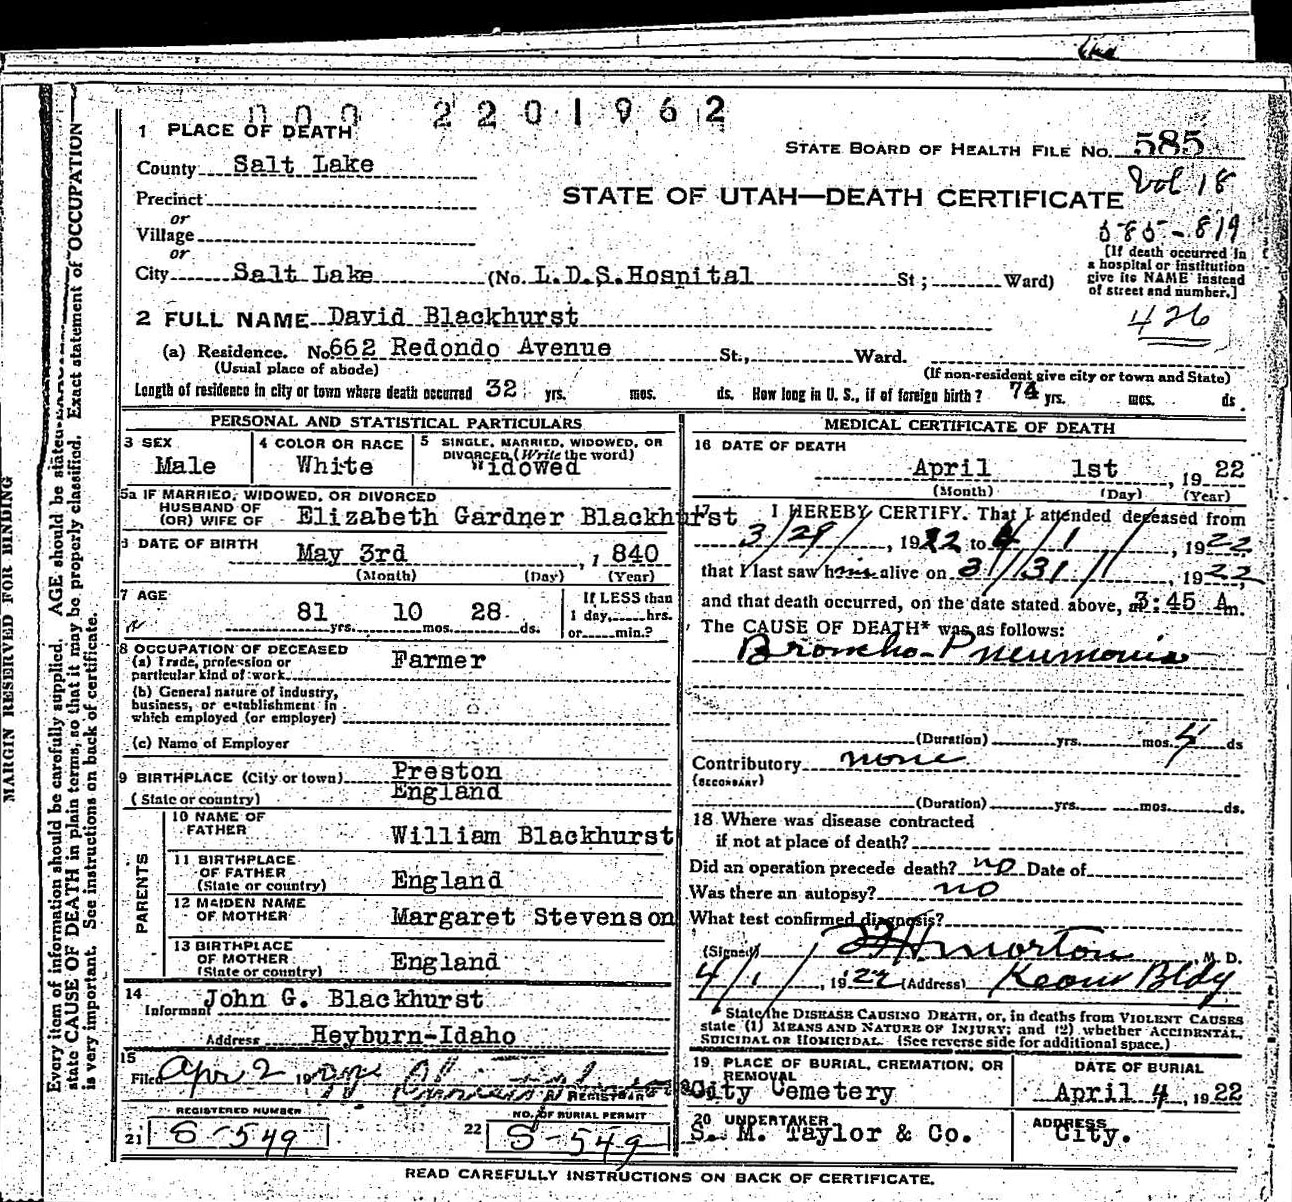 000 2201962
1 PLACE OF DEATH
STATE BOARD OF HEALTH FILE No. 585
County Salt Lake
Vol 18
STATE OF UTAH—DEATH CERTIFICATE
Precinct
or
Village
585-819
or
[If death occurred in
a hospital or institution
give its NAME instead
of street and number.]
City Salt Lake (No. L.D.S.Hospital St; Ward)
426
2 FULL NAME David Blackhurst
(a) Residence. No. 662 Redondo Avenue St., Ward.
(Usual place of abode) (If non-resident give city or town and State)
Length of residence in city or town where death occurred 32 yrs. mos. ds. How long in U. S., if of foreign birth? 74 yrs. mos. ds.
PERSONAL AND STATISTICAL PARTICULARS
3 SEX
Male
4 COLOR OR RACE
White
5 SINGLE, MARRIED, WIDOWED, OR
DIVORCED (Write the word)
Widowed
5a IF MARRIED, WIDOWED, OR DIVORCED
HUSBAND OF
(OR) WIFE OF Elizabeth Gardner Blackhurst
6 DATE OF BIRTH
May 3rd, 1840
(Month) (Day) (Year)
7 AGE
81 yrs. 10 mos. 28 ds.
If LESS than
1 day, hrs.
or min.?
8 OCCUPATION OF DECEASED
(a) Trade, profession or
particular kind of work Farmer
(b) General nature of industry,
business, or establishment in
which employed (or employer)
(c) Name of Employer
9 BIRTHPLACE (City or town) Preston
(State or country) England
PARENTS
10 NAME OF
FATHER William Blackhurst
11 BIRTHPLACE
OF FATHER
(State or country) England
12 MAIDEN NAME
OF MOTHER Margaret Stevenson
13 BIRTHPLACE
OF MOTHER
(State or country) England
14
Informant John G. Blackhurst
Address Heyburn-Idaho
15
Filed Apr 2 19
REGISTRAR
REGISTERED NUMBER
21 S-549
NO. OF BURIAL PERMIT
22 S-549
MEDICAL CERTIFICATE OF DEATH
16 DATE OF DEATH
April 1st, 1922
(Month) (Day) (Year)
17 I HEREBY CERTIFY. That I attended deceased from
3/29/, 1922 to 4/1/, 1922
that I last saw him alive on 3/31/, 1922,
and that death occurred, on the date stated above, at 3:45 A.m.
The CAUSE OF DEATH* was as follows:
Broncho-Pneumonia
(Duration) yrs. mos. 4 ds
Contributory none
(SECONDARY)
(Duration) yrs. mos. ds.
18 Where was disease contracted
if not at place of death?
Did an operation precede death? no Date of
Was there an autopsy? no
What test confirmed diagnosis?
(Signed) Morton, M. D.
4/1/, 1922 (Address) Bldg
State the DISEASE CAUSING DEATH, or, in deaths from VIOLENT CAUSES
state (1) MEANS AND NATURE OF INJURY; and (2) whether ACCIDENTAL,
SUICIDAL OR HOMICIDAL. (See reverse side for additional space.)
19 PLACE OF BURIAL, CREMATION, OR
REMOVAL
City Cemetery
DATE OF BURIAL
April 4, 1922
20 UNDERTAKER
S. M. Taylor & Co.
ADDRESS
City.
READ CAREFULLY INSTRUCTIONS ON BACK OF CERTIFICATE.
MARGIN RESERVED FOR BINDING
Every item of information should be carefully supplied. AGE should be stated EXACTLY.
state CAUSE OF DEATH in plain terms, so that it may be properly classified. Exact statement of OCCUPATION
is very important. See instructions on back of certificate.